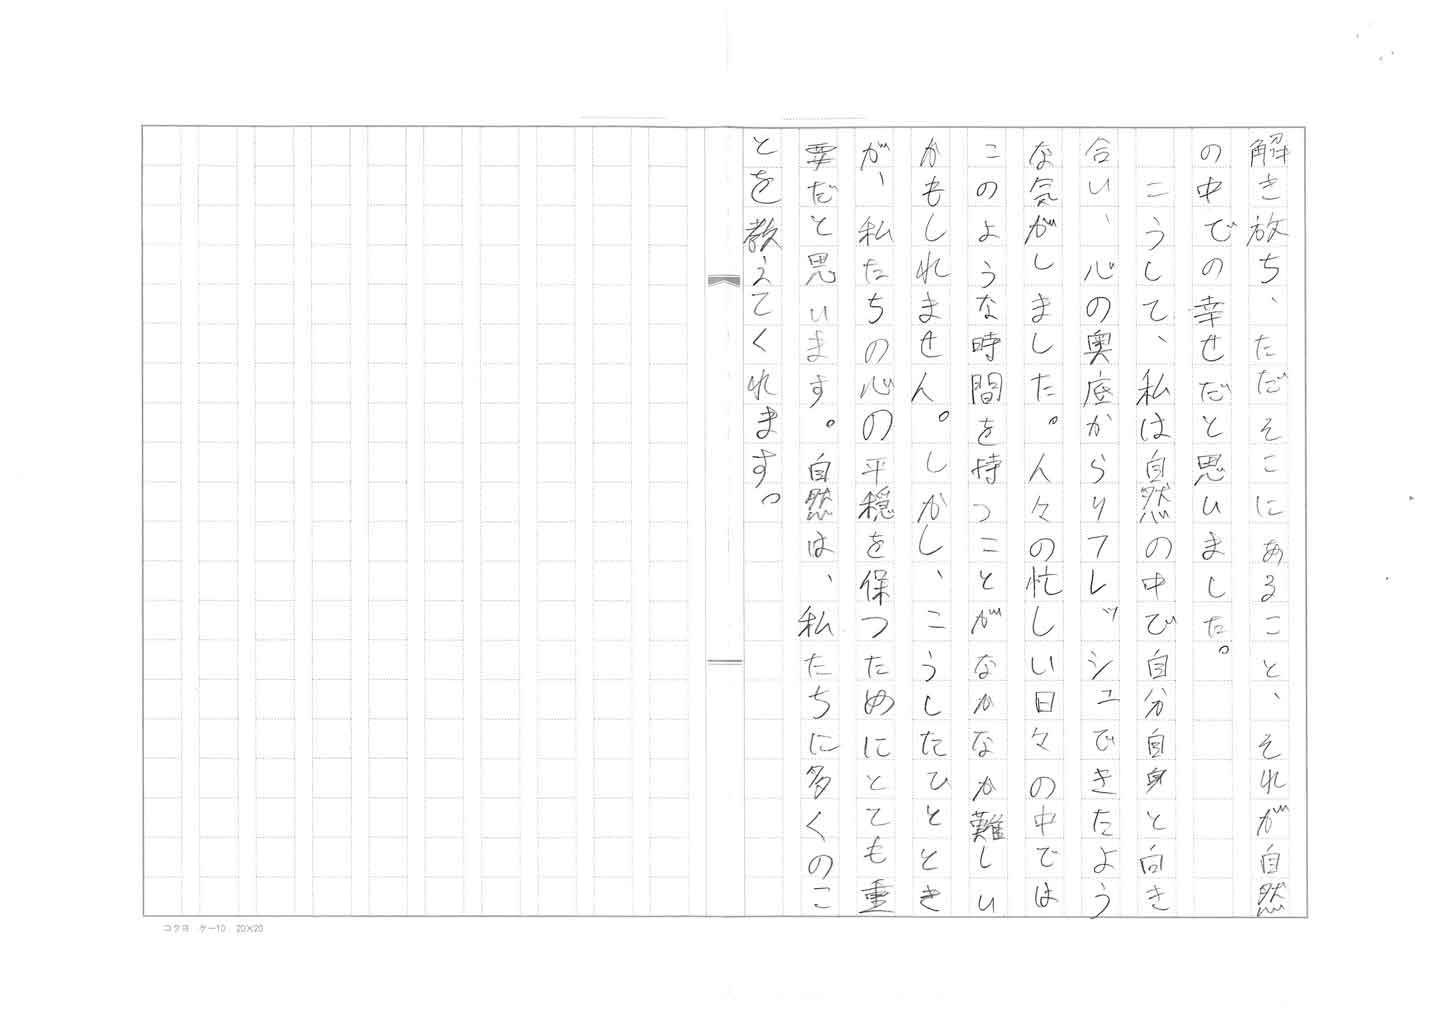 解き放ち、ただそこにあること、それが自然
の中での幸せだと思いました。
こうして、私は自然の中で自分自身と向き
合い、心の奥底からリフレッシュできたよう
な気がしました。人々の忙しい日々の中では
このような時間を持つことがなかなか難しい
かもしれません。しかし、こうしたひととき
が、私たちの心の平穏を保つためにとても重
要だと思います。自然は、私たちに多くのこ
とを教えてくれます。
コクヨ ケー10 20×20